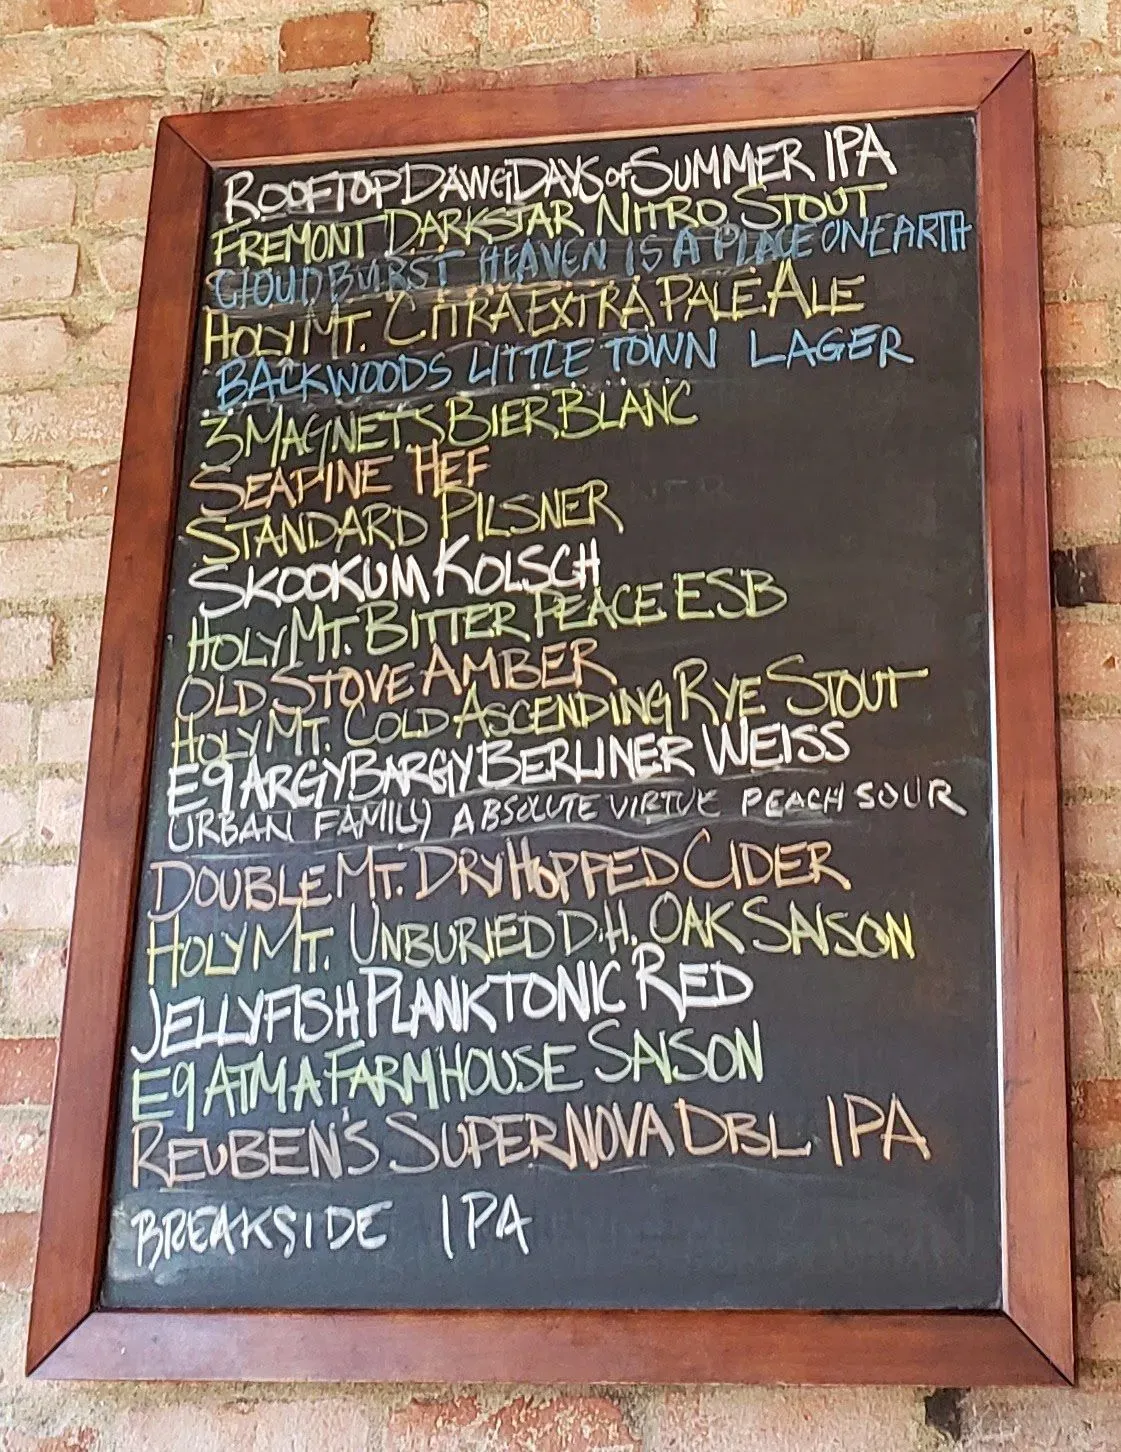 ROOFTOP DAWG DAYS OF SUMMER IPA
FREMONT DARKSTAR NITRO STOUT
CLOUDBURST HEAVEN IS A PLACE ON EARTH
HOLY MT. CITRA EXTRA PALE ALE
BACKWOODS LITTLE TOWN LAGER
3 MAGNETS BIER BLANC
SEAPINE HEF
STANDARD PILSNER
SKOOKUM KOLSCH
HOLY MT. BITTER PEACE ESB
OLD STOVE AMBER
HOLY MT. COLD ASCENDING RYE STOUT
E9 ARGY BARGY BERLINER WEISS
URBAN FAMILY ABSOLUTE VIRTUE PEACH SOUR
DOUBLE MT. DRY HOPPED CIDER
HOLY MT. UNBURIED D.H. OAK SAISON
JELLYFISH PLANKTONIC RED
E9 ATMA FARMHOUSE SAISON
REUBEN'S SUPERNOVA DBL IPA
BREAKSIDE IPA